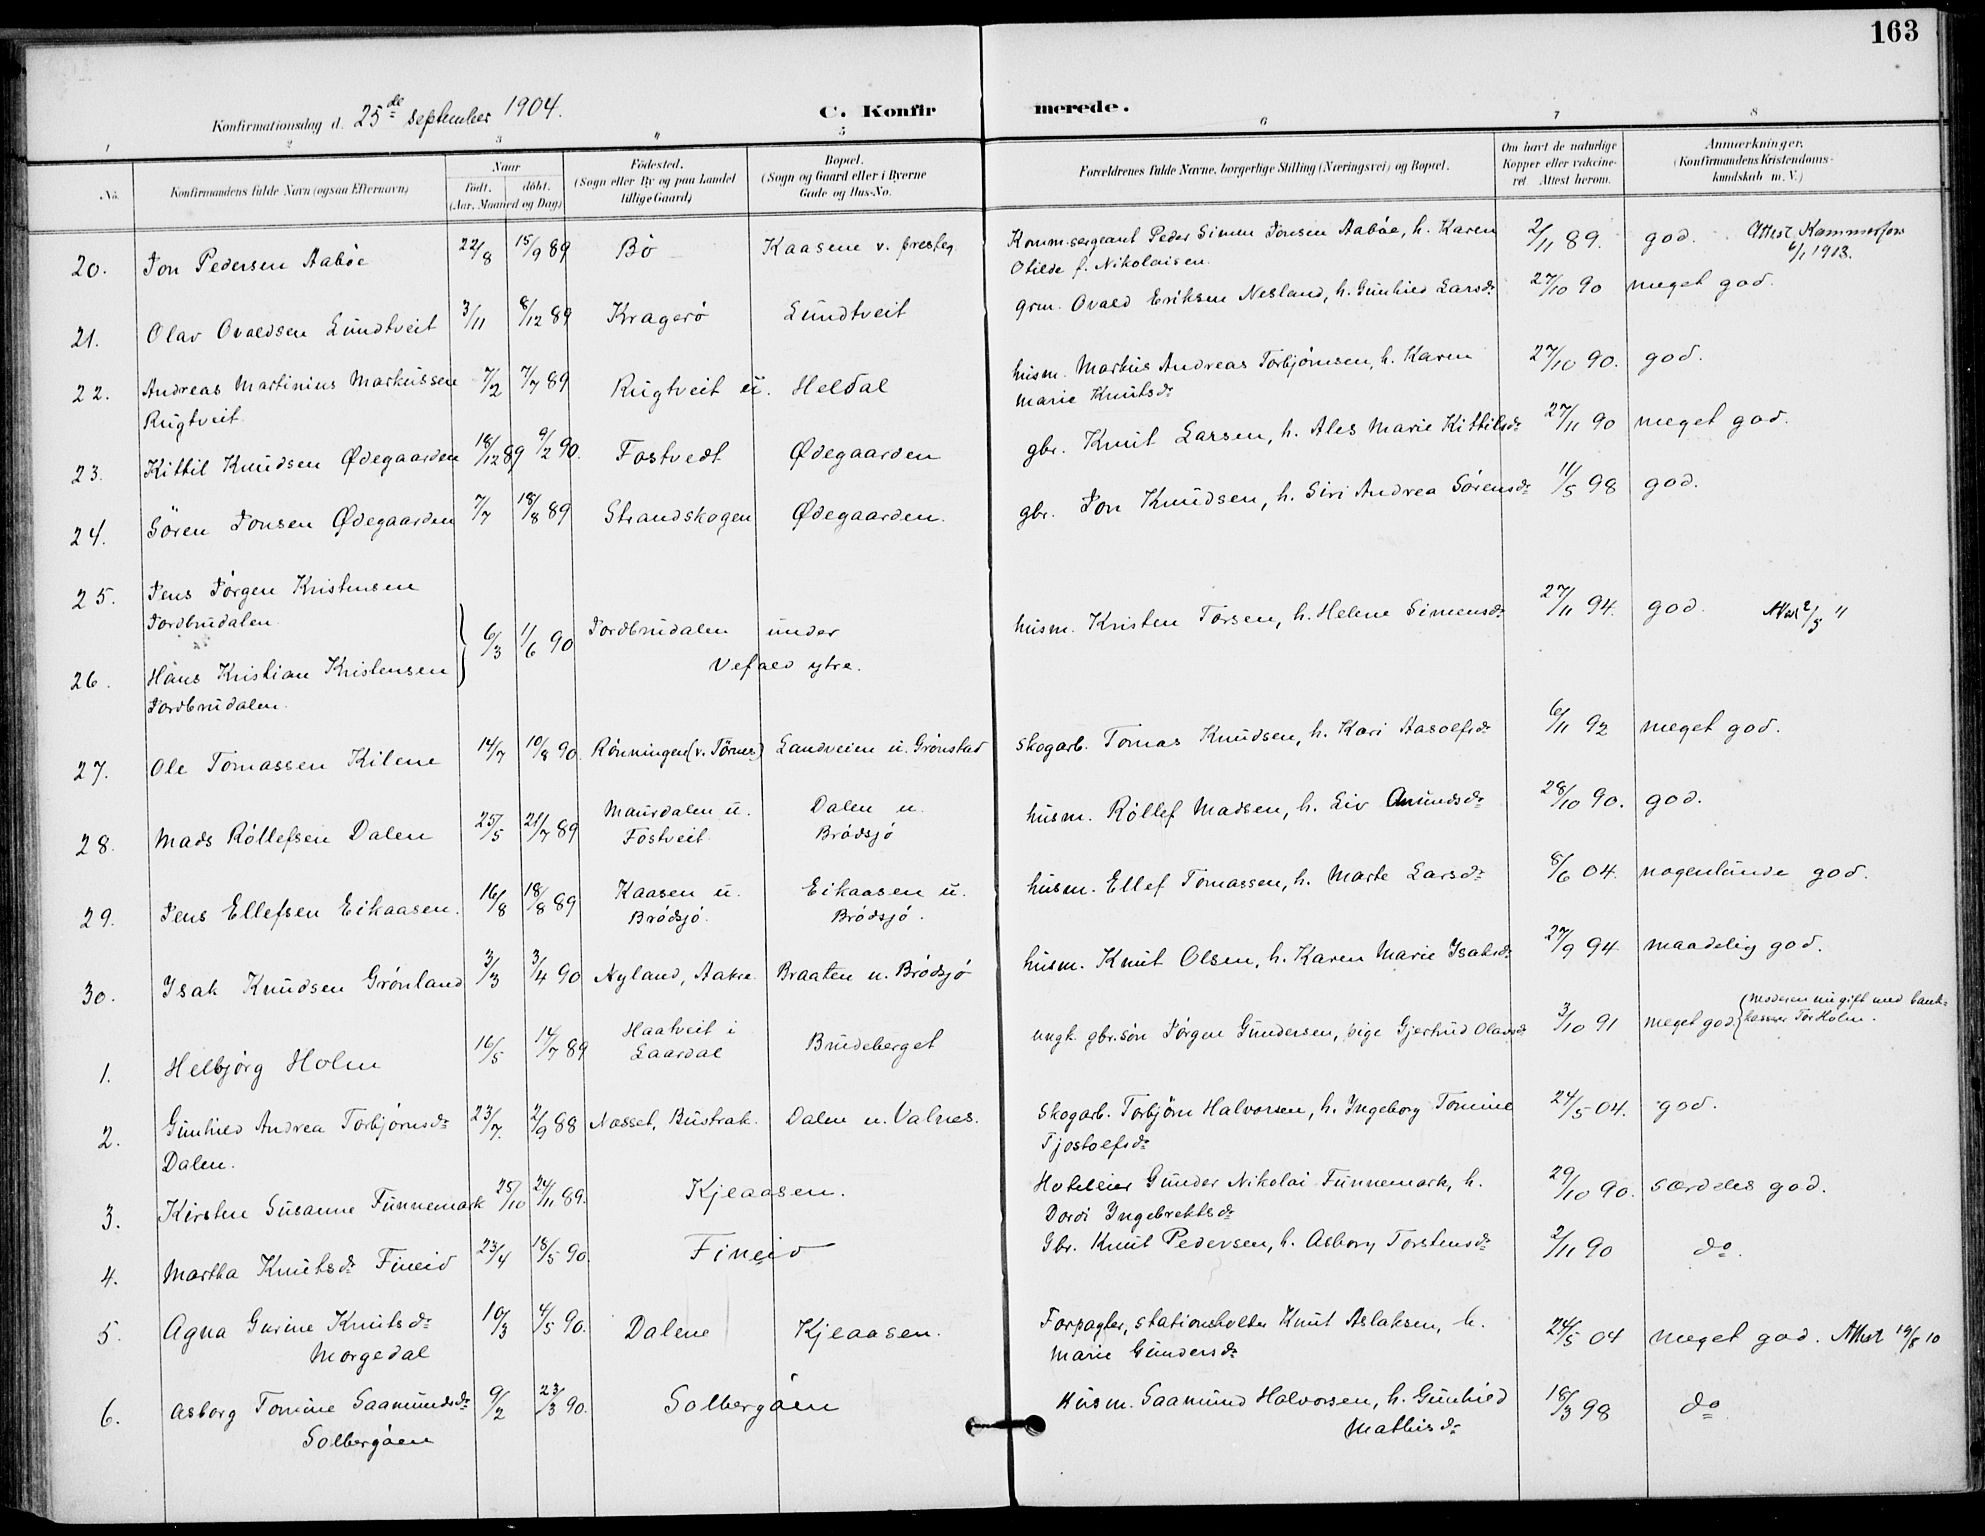 163
Konfirmationsdag d. 25de september 1904.
C. Konfirmerede.
1 2 3 4 5 6 7 8
No.
Konfirmandens fulde Navn (ogsaa Efternavn)
Naar
født. døbt.
(Aar, Maaned og Dag)
Fødested.
(Sogn eller By og paa Landet
tillige Gaard)
Bopæl.
(Sogn og Gaard eller i Byerne
Gade og Hus-No.
Forældrenes fulde Navne, borgerlige Stilling (Næringsvei) og Bopæl.
Om havt de naturlige
Kopper eller vakcine-
ret. Attest herom.
Anmærkninger.
(Konfirmandens Kristendoms-
kundskab m. V.)
20. Jon Pedersen Aabøe 22/8 15/9 89 Bø Kaasene v. presteg. Komm.sergeant Peder Simon Jonsen Aabøe, h. Karen 2/11 89. god. Attest Kammerfors
Otilde f. Nikolaisen. 6/1 1913.
21. Olav Ovaldsen Lundtveit 3/11 8/12 89 Kragerø Lundtveit grm. Ovald Eriksen Nesland, h. Gunhild Larsdr 27/10 90 meget god.
22. Andreas Martinius Markussen 7/2 7/7 89 Rugtveit u. Heldal husm. Markus Andreas Torbjørnsen, h. Karen 27/10 90. god.
Rugtveit. Marie Knutsdr
23. Kittil Knudsen Ødegaarden 18/12 89 9/2 90. Fostvedt Ødegaarden gbr. Knut Larsen, h. Ales Marie Kittilsdr 27/11 90 meget god.
24. Søren Jonsen Ødegaarden 7/7 18/8 89 Strandskogen Ødegaarden. gbr. Jon Knudsen, h. Siri Andrea Sørensdr 11/5 98 god.
25. Jens Jørgen Kristensen
Jordbrudalen. } 6/3 11/6 90 Jordbrudalen under husm. Kristen Torsen, h. Helene Simensdr 27/11 94. god. Attest 2/3 "
26. Hans Kristian Kristensen Vefald ytre.
Jordbrudalen.
27. Ole Tomassen Kilene 14/7 10/8 90. Rønningen (v. Tørnes) Landveien u. Grønstad skogarb. Tomas Knudsen, h. Kari Aasolfsdr 6/11 92 meget god.
28. Mads Røllefsen Dalen 25/5 21/7 89 Maurdalen u. Dalen u. husm. Røllef Madsen, h. Liv Amundsdr 28/10 90. god.
Fostveit. Brødsjø
29. Jens Ellefsen Eikaasen. 16/8 18/8 89 Kaasen u. Eikaasen u. husm. Ellef Tomassen, h. Marte Larsdr 8/6 04. nogenlunde god.
Brødsjø. Brødsjø.
30. Isak Knudsen Grønland 3/3 3/4 90 Nyland, Aakre Braaten u. Brødsjø husm. Knut Olsen, h. Karen Marie Isaksdr 27/9 94. maadelig god.
1. Helbjørg Holm 16/5 14/7 89 Haatveit i Brudeberget ungk. gbr.søn Jørgen Gundersen, pige Gjertrud Olavsdr 3/10 91 meget god. (Moderen nu gift med bank-
Laardal kasser Tor Holm.
2. Gunhild Andrea Torbjørnsdr 23/7. 2/9 88 Næsset, Bustrak. Dalen u. Valnes. skogarb. Torbjørn Halvorsen, h. Ingeborg Tomine 24/5 04. god.
Dalen. Tjostolfsdr
3. Kirsten Susanne Funnemark 25/10 24/11 89. Kjeaasen. Hoteleier Gunder Nikolai Funnemark, h. 29/10 90. særdeles god.
Dordi Ingebrektsdr
4. Martha Knutsdr Fineid 23/4 18/5 90. Fineid Gbr. Knut Pedersen, h. Asborg Torstensdr 2/11 90 do.
5. Agna Gurine Knutsdr 10/3 4/5 90. Dalene Kjeaasen. Forpagter, stationsholder Knut Aslaksen, h. 24/5 04 meget god. Attest 12/8 10
Morgedal Marie Gundersdr
6. Asborg Tomine Saamundsdr 9/2 23/3 90. Solbergåen Husm. Saamund Halvorsen, h. Gunhild 18/3 98 do
Solbergåen Mathisdr